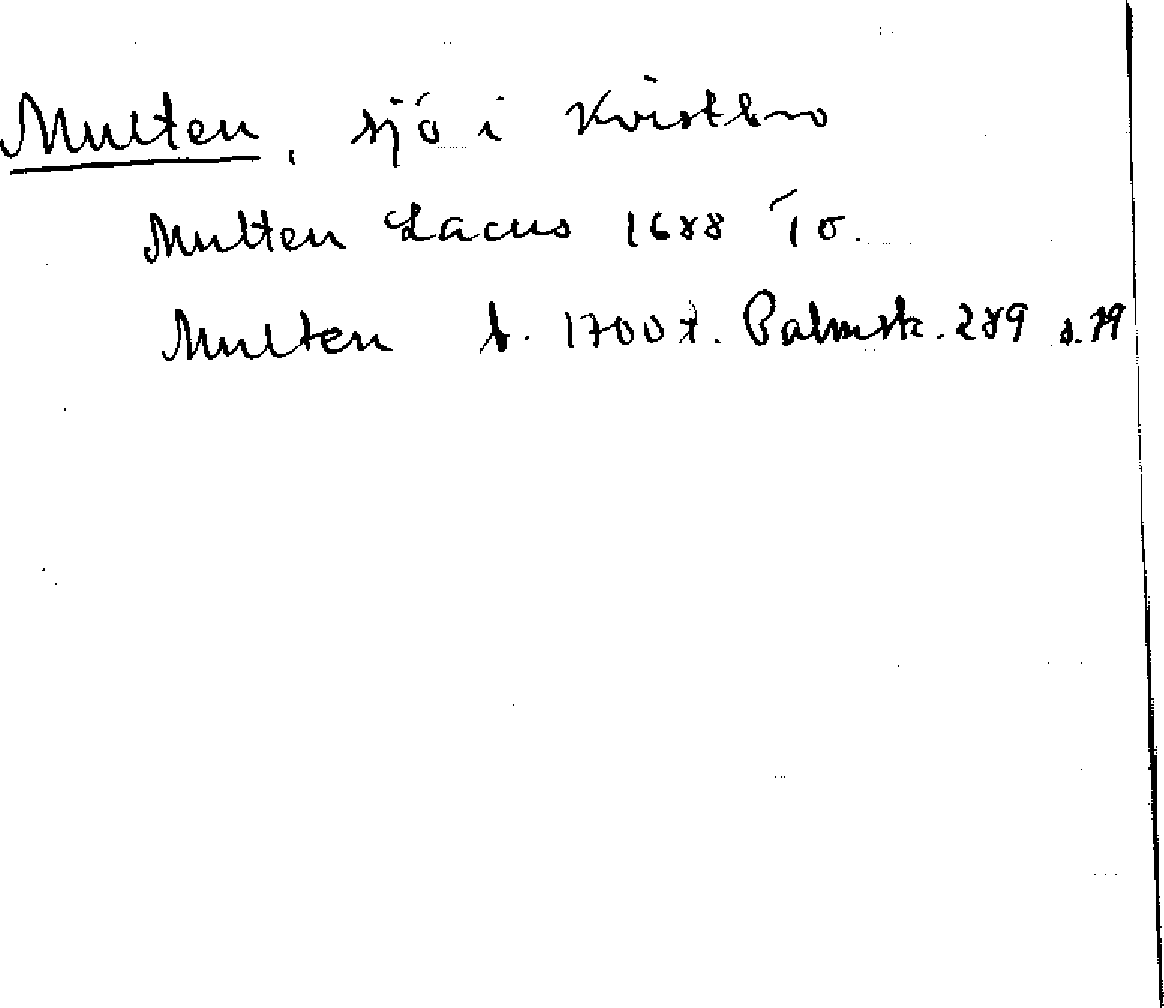 Multen, sjö i Kvistbro
Multen Lacus 1688 To.
Multen b. 1700 t. Palmsk. 289 s. 79